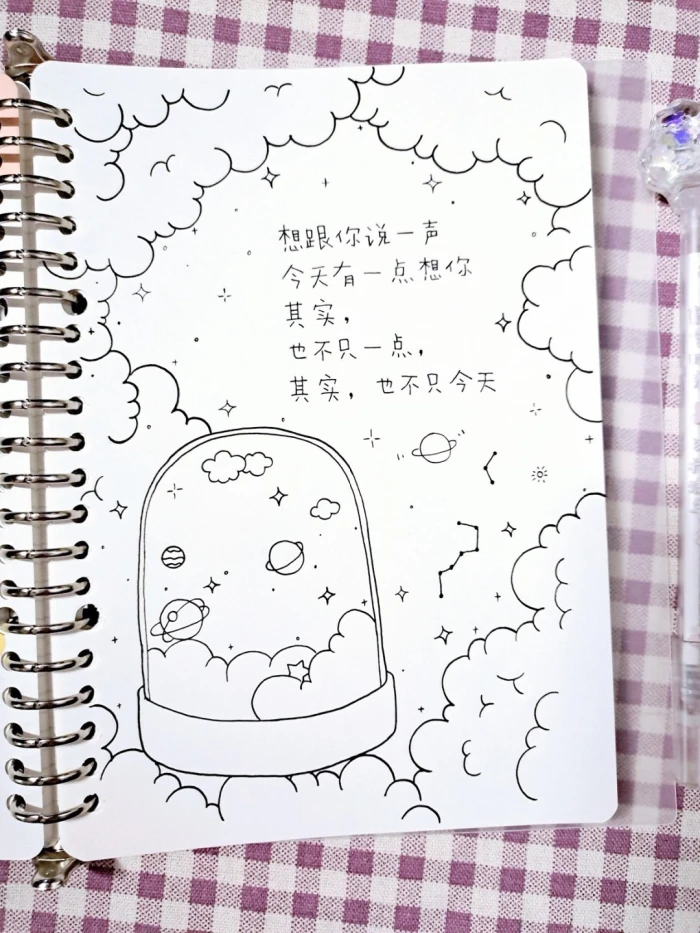 想跟你说一声
今天有一点想你
其实，
也不只一点，
其实，也不只今天